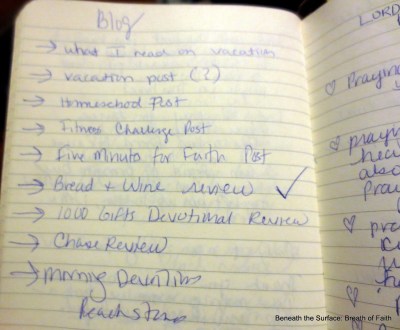 Blog
→ What I read on vacation
→ vacation post (?)
→ Homeschool Post
→ Fitness Challenge Post
→ Five Minute for Faith Post
→ Bread + Wine review ✓
→ 1000 Gifts Devotional Review
→ Chase Review
→ Morning Devotions
LORD
♡ Praying
♡ praying
hea
also
Pray
♡
Beneath the Surface: Breath of Faith